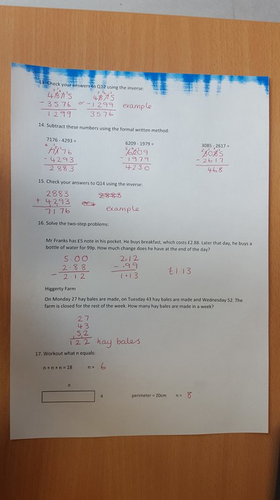 13. Check your answers to Q12 using the inverse:
4875 or 4875
- 3576 - 1299 example
1299 3576
14. Subtract these numbers using the formal written method:
7176 - 4293 = 6209 - 1979 = 3085 - 2617 =
7176 6209 3085
- 4293 - 1979 - 2617
2883 4230 468
15. Check your answers to Q14 using the inverse:
2883
+ 4293
7176 example
16. Solve the two-step problems:
Mr Franks has £5 note in his pocket. He buys breakfast, which costs £2.88. Later that day, he buys a
bottle of water for 99p. How much change does he have at the end of the day?
5.00 2.12
- 2.88 - .99 £1.13
2.12 1.13
Higgerty Farm
On Monday 27 hay bales are made, on Tuesday 43 hay bales are made and Wednesday 52. The
farm is closed for the rest of the week. How many hay bales are made in a week?
27
43
52
122 hay bales
17. Workout what n equals:
n + n + n = 18 n = 6
n
4 perimeter = 20cm n = 8